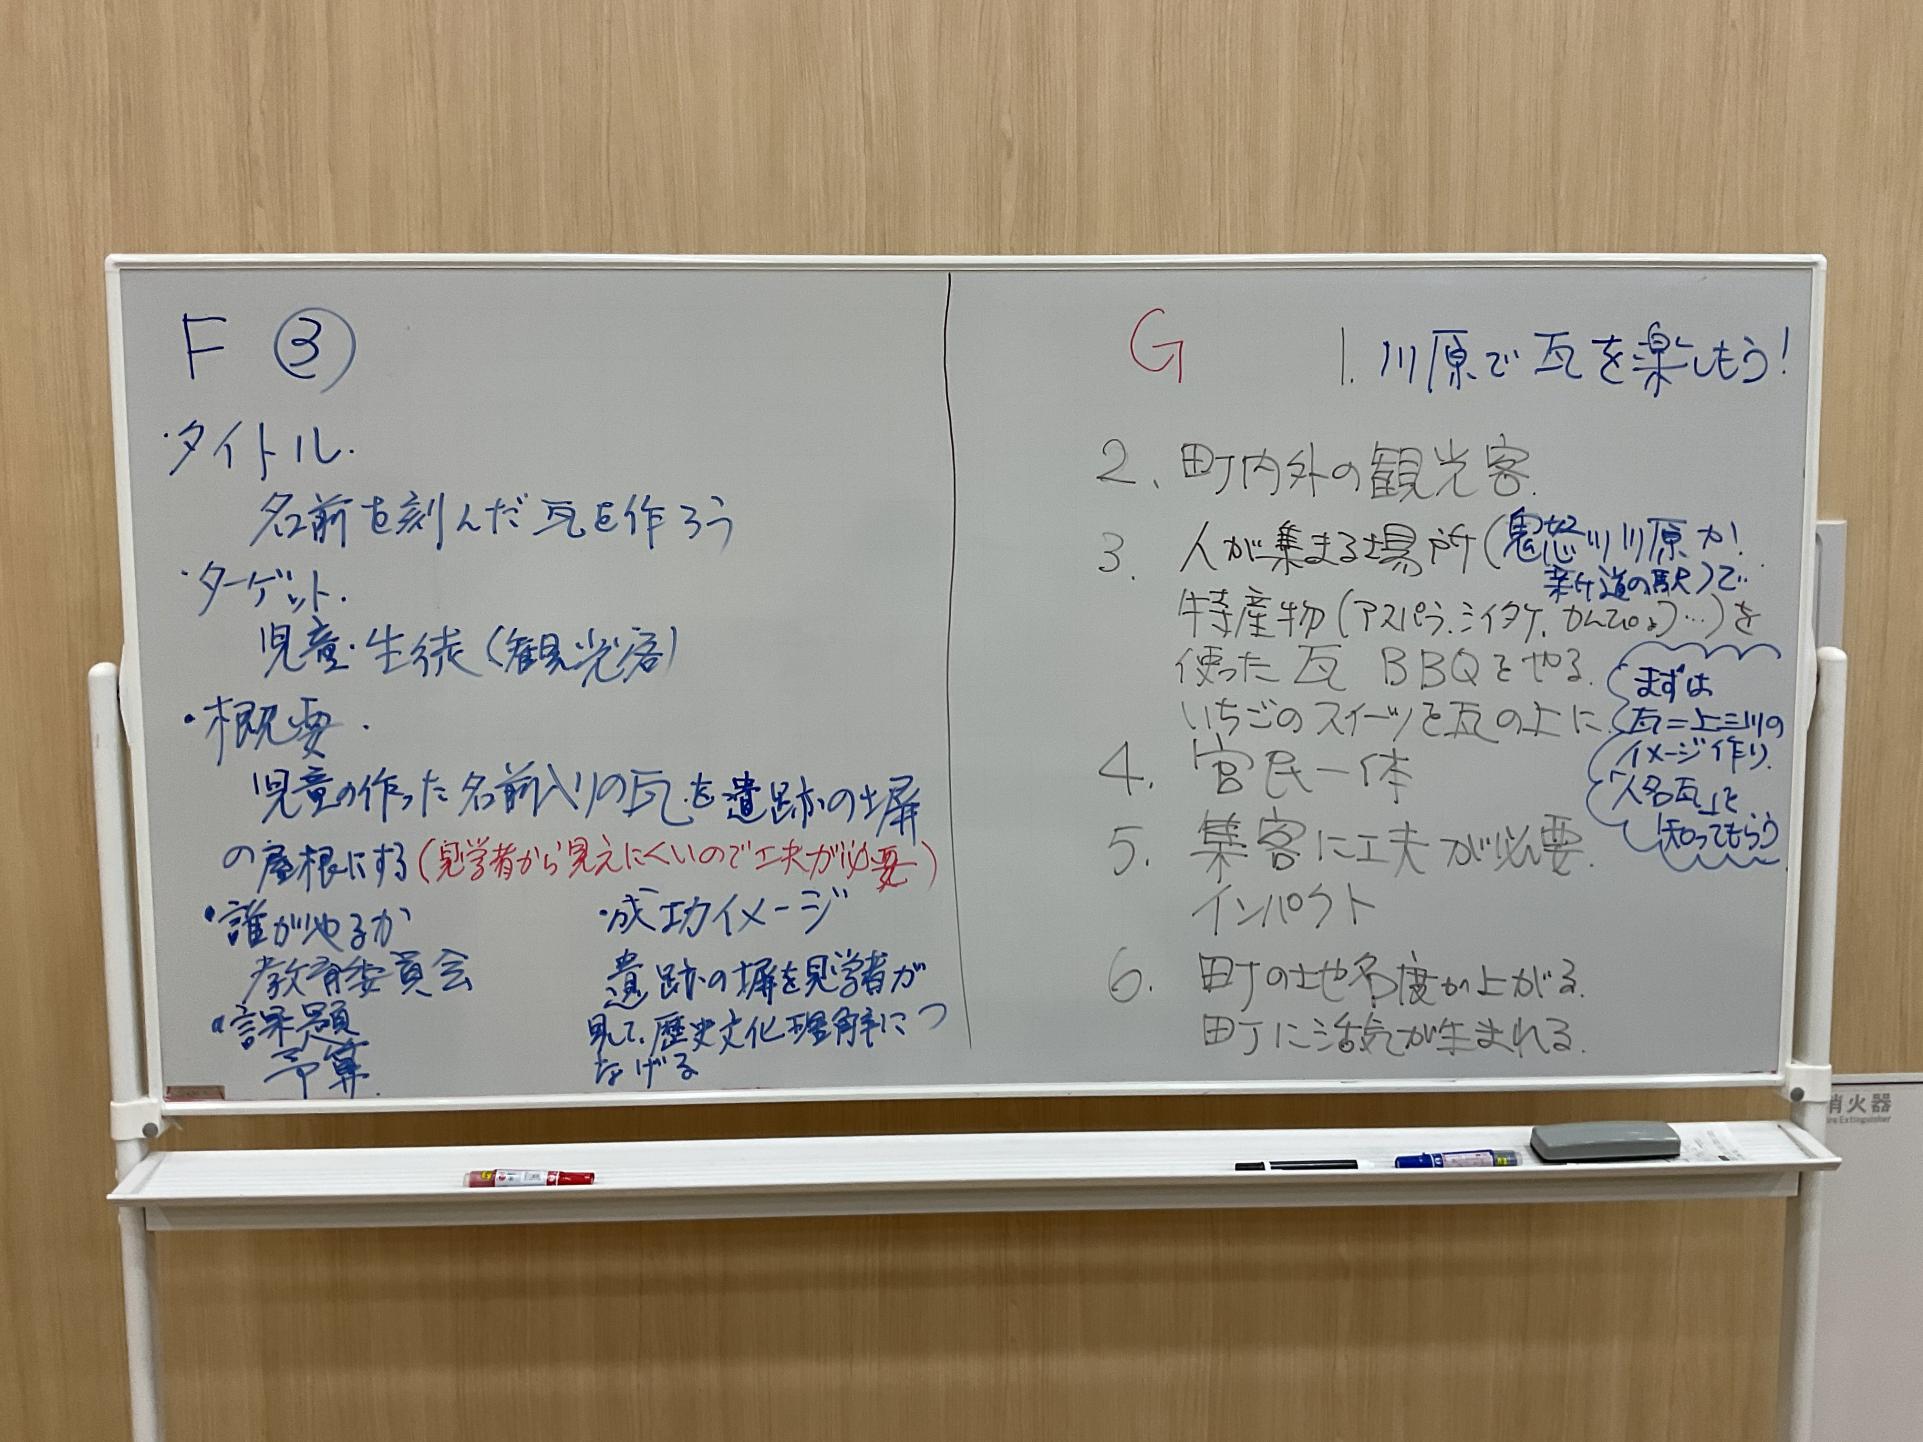 F ③
・タイトル.
名前を刻んだ瓦を作ろう
・ターゲット.
児童・生徒(観光客)
・概要.
児童の作った名前入りの瓦を遺跡の塀
の屋根にする(見学者から見えにくいので工夫が必要)
・誰がやるか
教育委員会
・課題
予算.
・成功イメージ
遺跡の塀を見学者が
見て、歴史文化理解につ
なげる
G 1. 川原で瓦を楽しもう!
2. 町内外の観光客.
3. 人が集まる場所(鬼怒川川原か
新道の駅)で
特産物(アスパラ、シイタケ、かんぴょう…)を
使った瓦BBQをやる.
いちごのスイーツを瓦の上に
4. 官民一体
5. 集客に工夫が必要.
インパクト
6. 町の知名度が上がる.
町に活気が生まれる.
まずは
瓦=上三川の
イメージ作り.
「人名瓦」を
知ってもらう
消火器
Fire Extinguisher